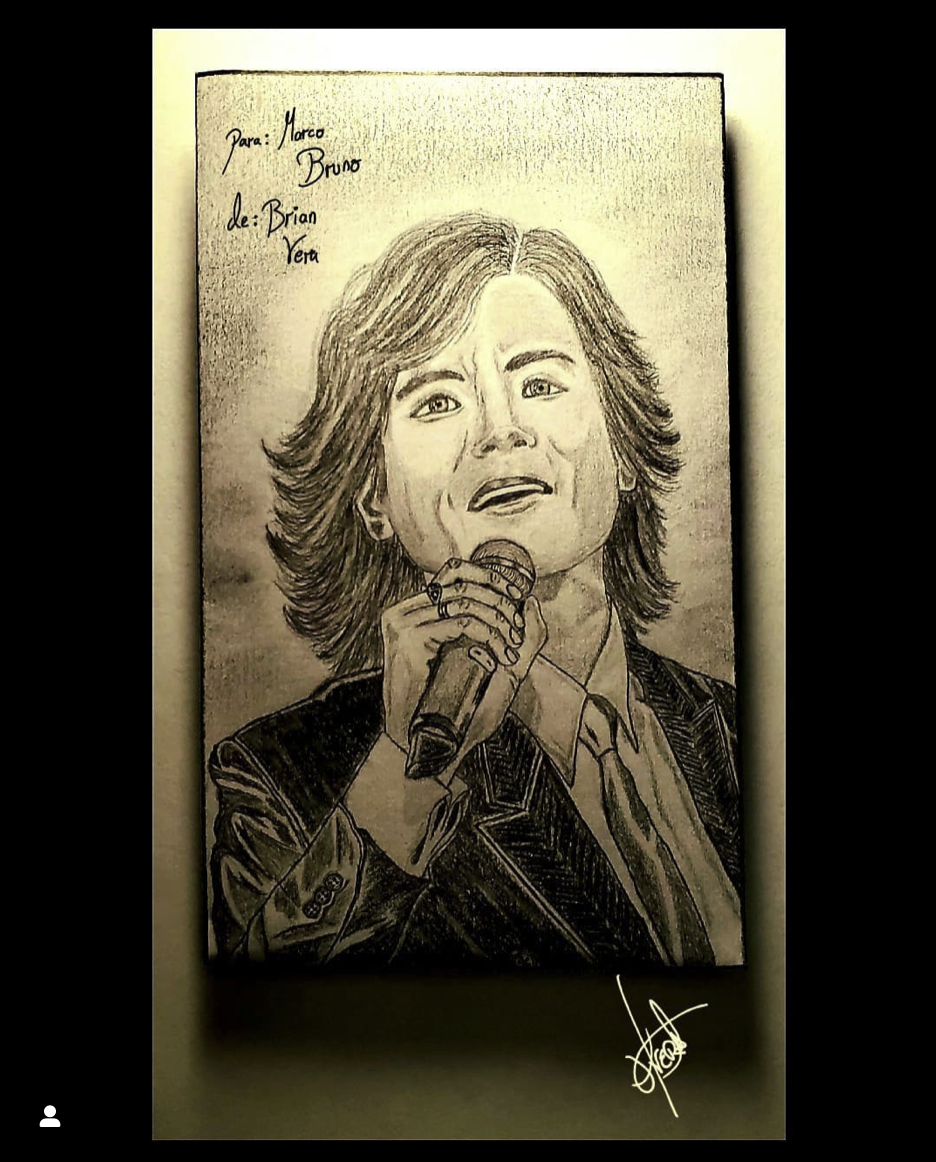 Para: Marco
Bruno
de: Brian
Vera